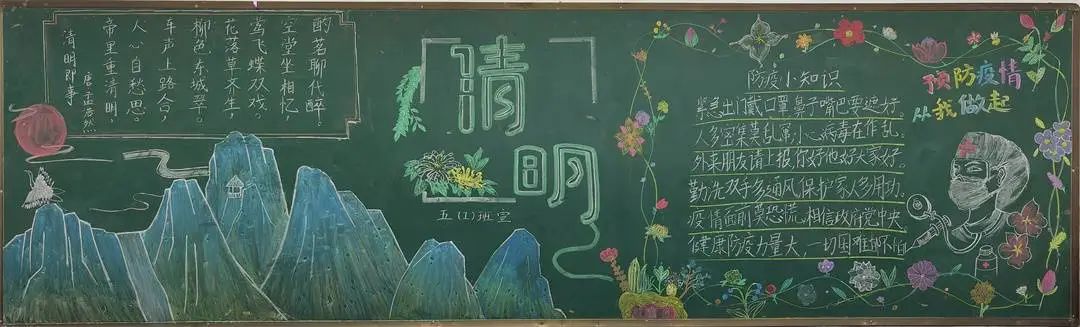 清明即事
唐 孟浩然
帝里重清明，
人心自愁思。
车声上路合，
柳色东城翠。
花落草齐生，
莺飞蝶双戏。
空堂坐相忆，
酌茗聊代醉。
清明
五(1)班宣
防疫小知识
紧急出门戴口罩,鼻子嘴巴要遮好。
人多密集莫乱窜,小心病毒在作乱。
外来朋友请上报,你好他好大家好。
勤洗双手多通风,保护家人多用功。
疫情面前莫恐慌,相信政府党中央
健康防疫力量大,一切困难都不怕
预防疫情
从我做起